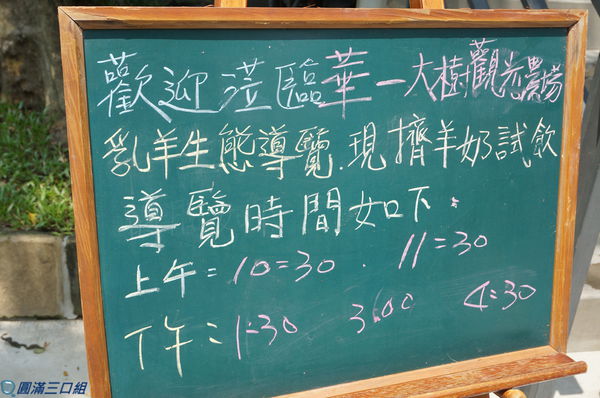 歡迎蒞臨華一大樹觀光農場
乳羊生態導覽.現擠羊奶試飲
導覽時間如下:
上午=10=30 . 11=30
下午=1:30 3:00 4:30
圓滿三口組